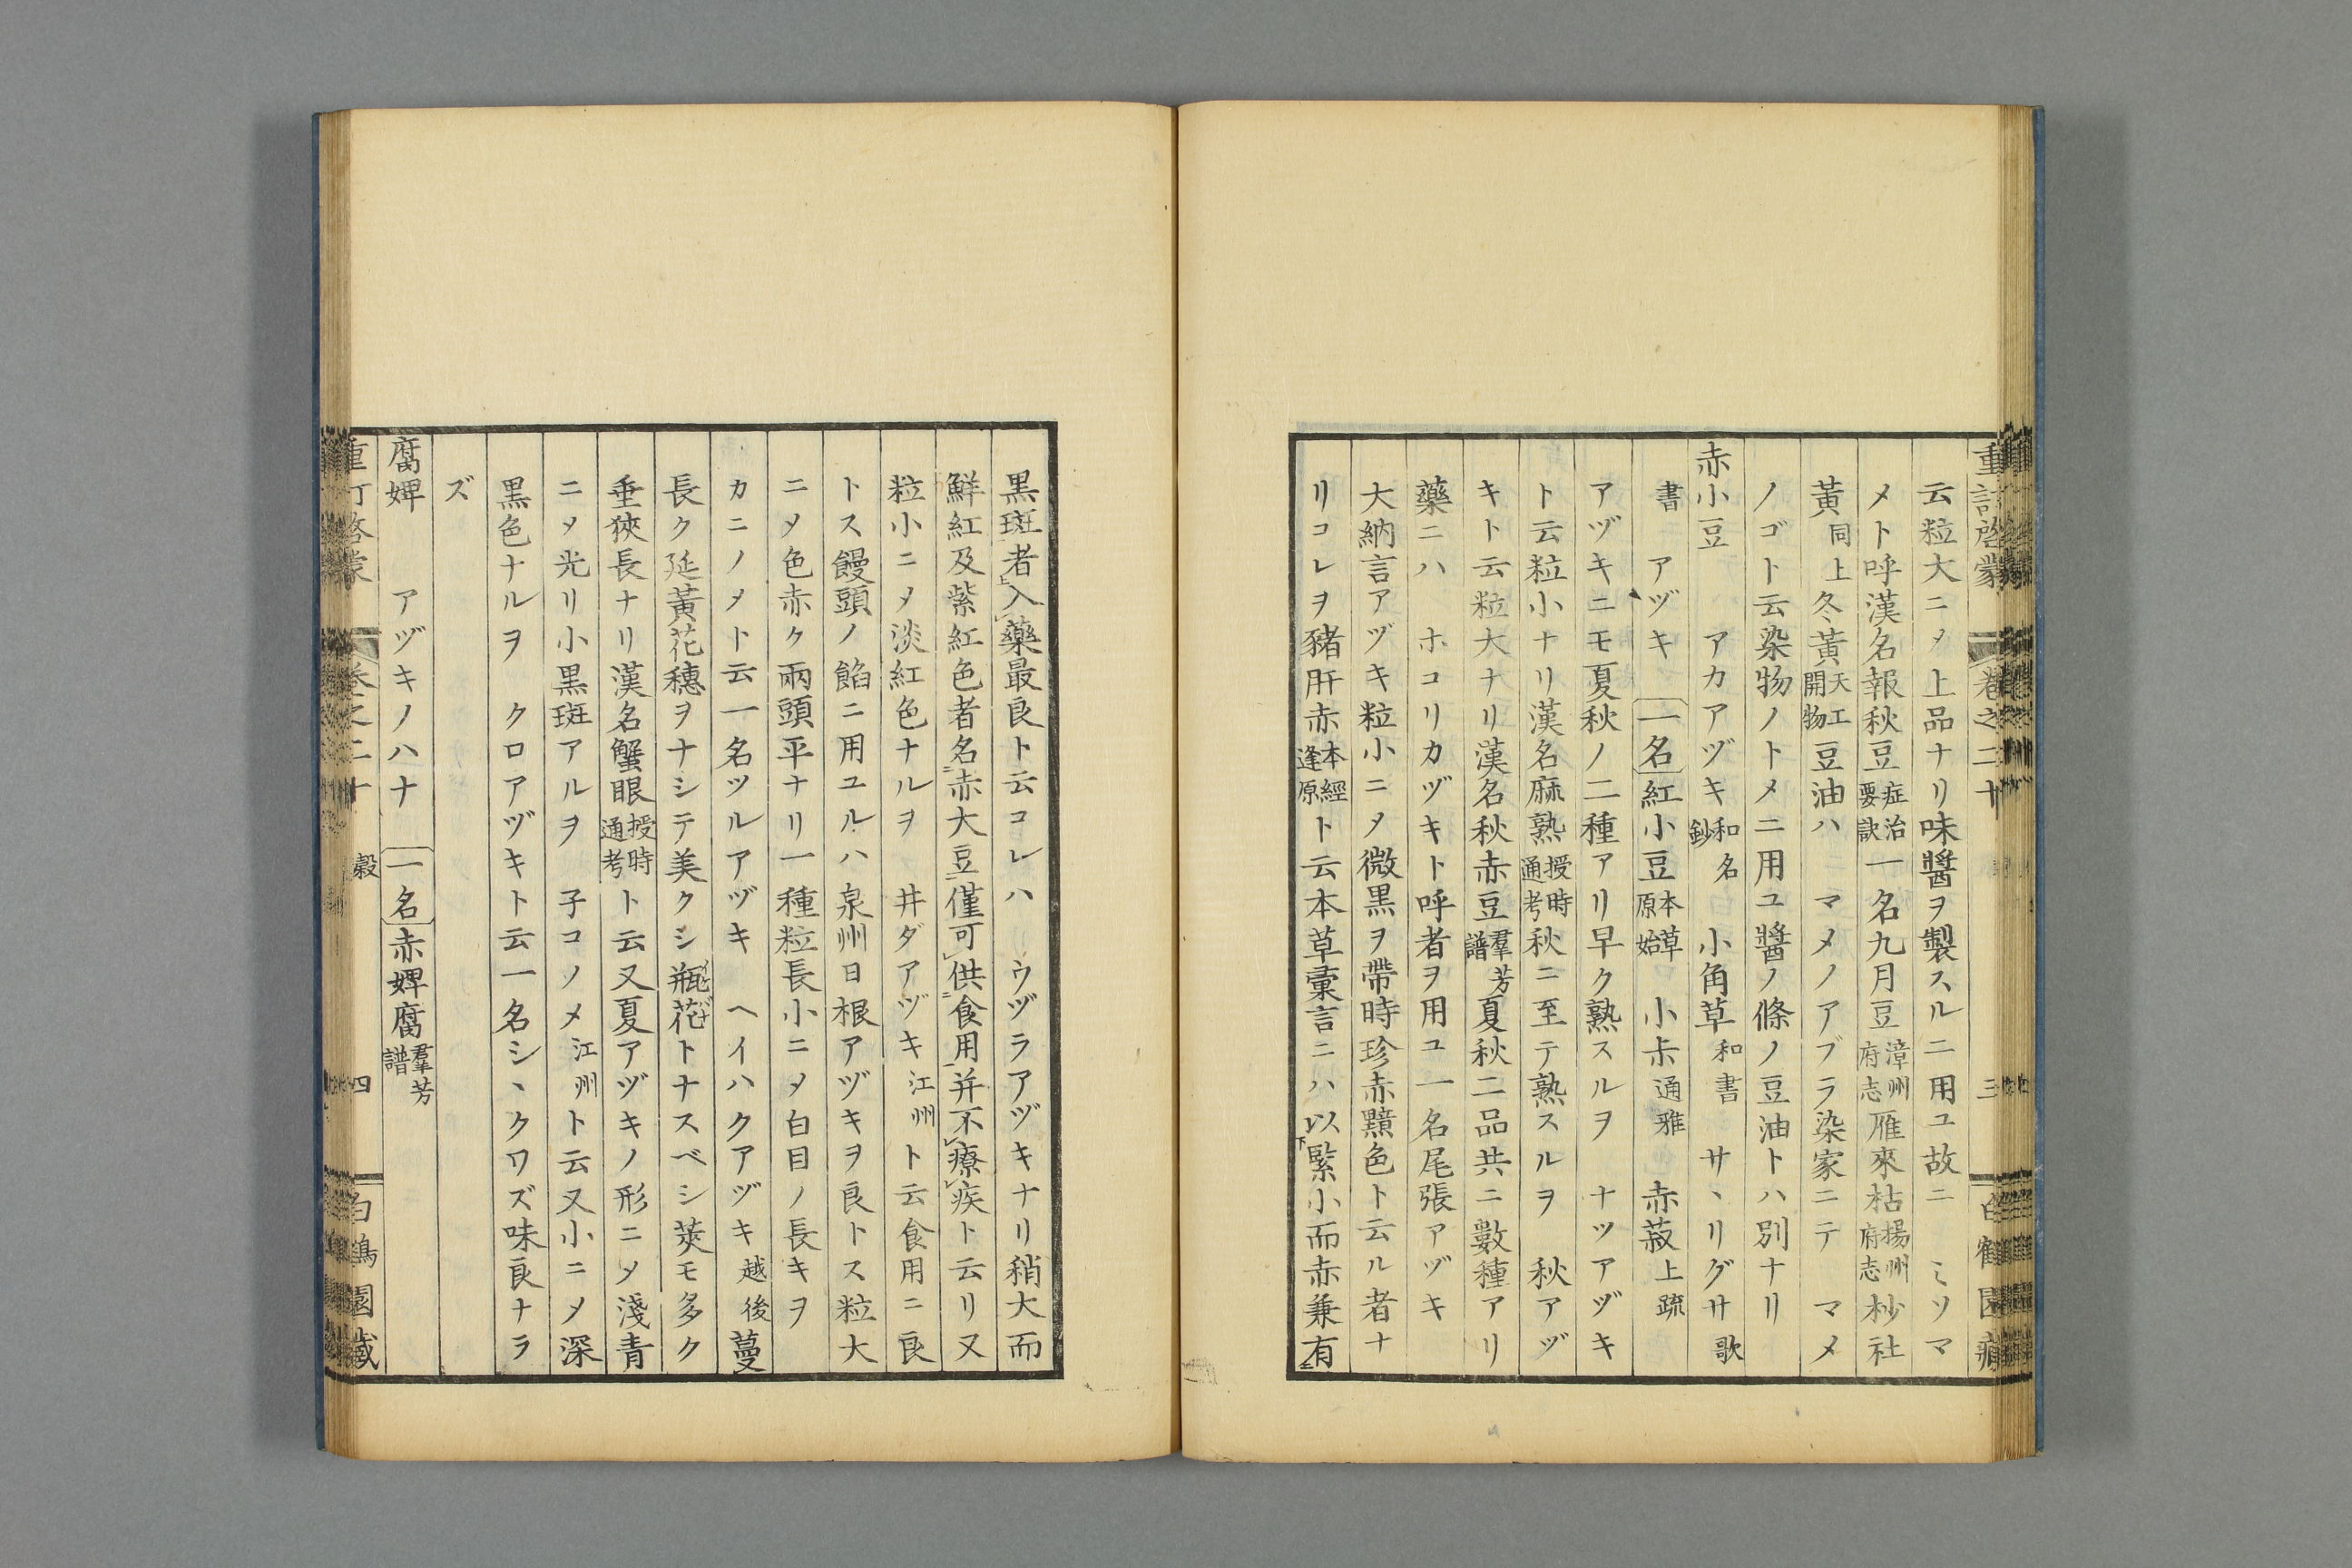 重訂啓蒙 卷之二十 三 白鶴園藏
云粒大ニㄨ上品ナリ味醬ヲ製スルニ用ユ故ニ ミソマ
メト呼漢名報秋豆症治要訣一名九月豆漳州府志雁來枯揚州府志杪社
黃同上冬黃天工開物豆油ハ マメノアブラ染家ニテ マメ
ノゴト云染物ノトメニ用ユ醬ノ條ノ豆油トハ別ナリ
赤小豆 アカアヅキ和名鈔 小角草和書 サヽリグサ歌
書 アヅキ 一名紅小豆本草原始 小尗通雅 赤菽上疏
アヅキニモ夏秋ノ二種アリ早ク熟スルヲ ナツアヅキ
ト云粒小ナリ漢名麻熟授時通考秋ニ至テ熟スルヲ 秋アヅ
キト云粒大ナリ漢名秋赤豆羣芳譜夏秋二品共ニ數種アリ
藥ニハ ホコリカヅキト呼者ヲ用ユ一名尾張アヅキ
大納言アヅキ粒小ニㄨ微黑ヲ帶時珍赤黯色ト云ル者ナ
リコレヲ豬肝赤本經逢原ト云本草彙言ニハ以緊小而赤兼有
黒斑者入藥最良ト云コレハ ウヅラアヅキナリ稍大而
鮮紅及紫紅色者名赤大豆僅可供食用并不療疾ト云リ又
粒小ニㄨ淡紅色ナルヲ 井ダアヅキ江州ト云食用ニ良
トス饅頭ノ餡ニ用ユルハ泉州日根アヅキヲ良トス粒大
ニㄨ色赤ク兩頭平ナリ一種粒長小ニㄨ白目ノ長キヲ
カニノメト云一名ツルアヅキ ヘイハクアヅキ越後蔓
長ク延黃花穗ヲナシテ美クシ瓶花トナスベシ莢モ多ク
垂狹長ナリ漢名蟹眼授時通考ト云又夏アヅキノ形ニㄨ淺青
ニㄨ光リ小黒斑アルヲ 子コノメ江州ト云又小ニㄨ深
黒色ナルヲ クロアヅキト云一名シヽクワズ味良ナラ
ズ
腐婢 アヅキノハナ 一名赤婢腐羣芳譜
重訂啓蒙 卷之二十 穀 四 白鶴園藏